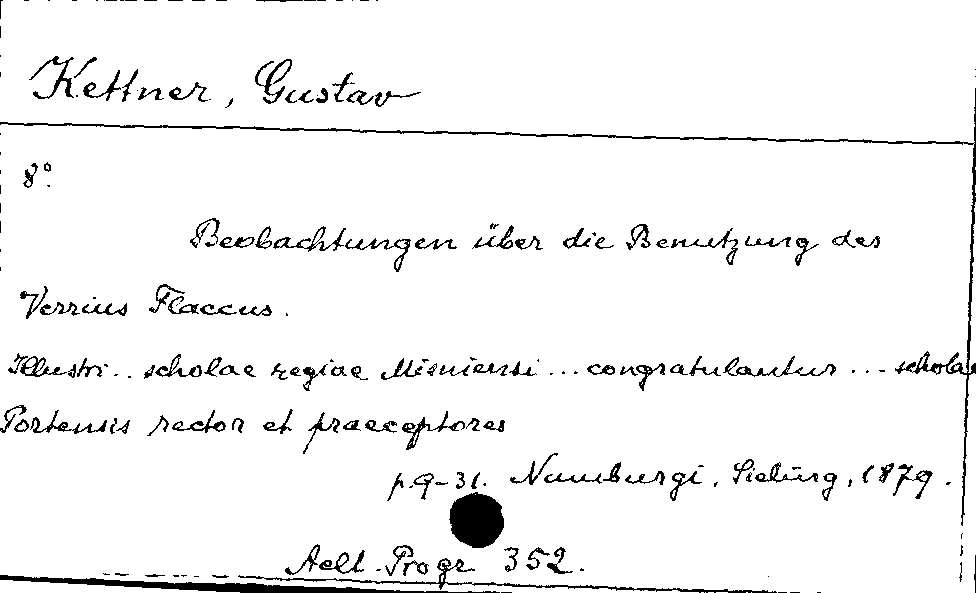 Kettner, Gustav
8º.
Beobachtungen über die Benutzung des
Verrius Flaccus.
Illustri .. scholae regiae Misniensi ... congratulantur ... scholae
Portensis rector et praeceptores
p. 9-31. Numburgi, Sieling, 1879.
Aelt. Progr 352.